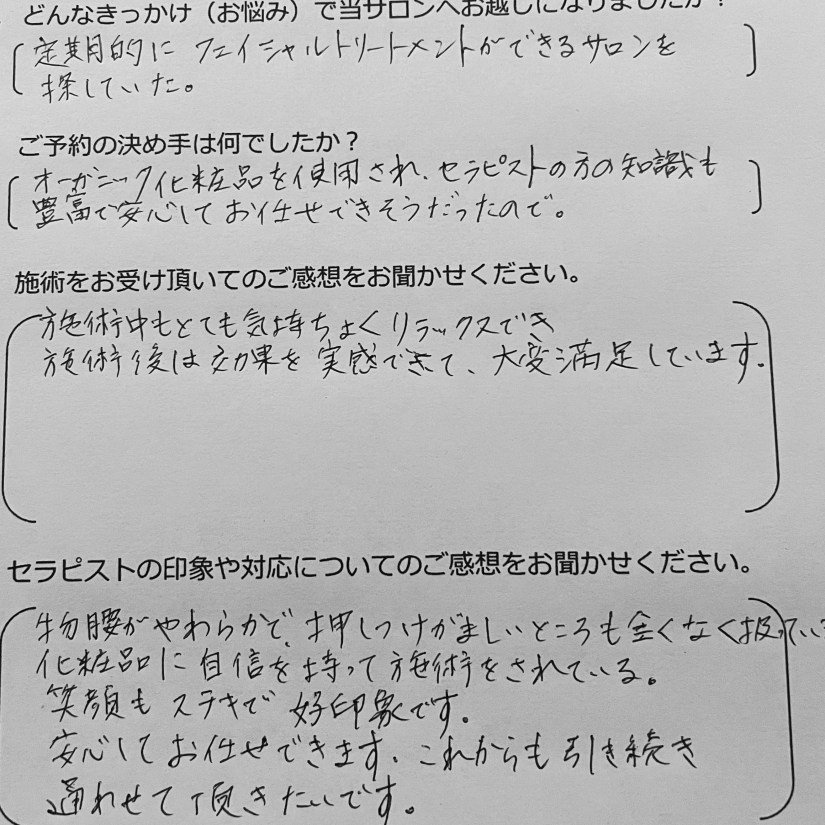 どんなきっかけ（お悩み）で当サロンへお越しになりましたか？
定期的に フェイシャルトリートメントができるサロンを
探していた。
ご予約の決め手は何でしたか？
オーガニック化粧品を使用され、セラピストの方の知識も
豊富で安心してお任せできそうだったので。
施術をお受け頂いてのご感想をお聞かせください。
施術中もとても気持ちよくリラックスでき
施術後は効果を実感できて、大変満足しています。
セラピストの印象や対応についてのご感想をお聞かせください。
物腰がやわらかで、押しつけがましいところも全くなく扱ってい
化粧品に自信を持って施術をされている。
笑顔もステキで好印象です。
安心してお任せできます。これからも引き続き
通わせて頂きたいです。